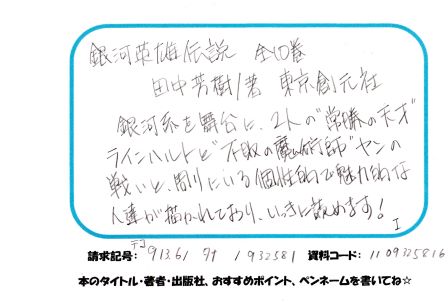 銀河英雄伝説 全10巻
田中芳樹/著 東京創元社
銀河系を舞台に、2人の"常勝の天才"
ラインハルトと"不敗の魔術師"ヤンの
戦いと、周りにいる個性的で魅力的な
人達が描かれており、いっきに読めます!
I
請求記号: 913.61 タナ 1 932581 資料コード: 1109325816
本のタイトル・著者・出版社、おすすめポイント、ペンネームを書いてね☆